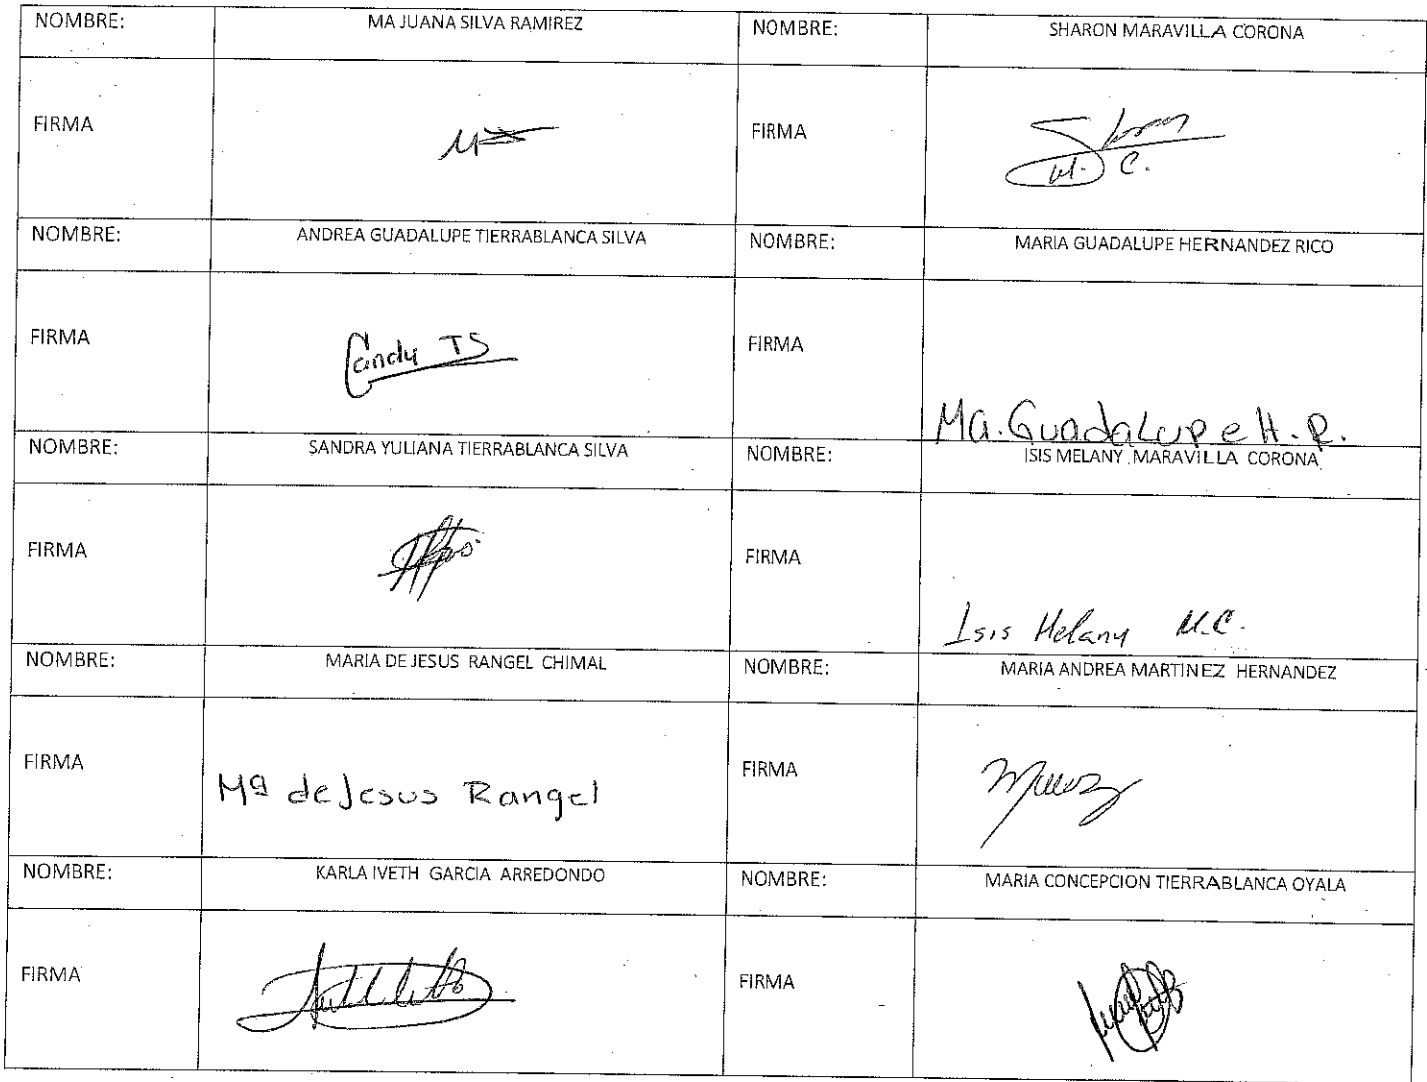 NOMBRE: MA JUANA SILVA RAMIREZ NOMBRE: SHARON MARAVILLA CORONA
FIRMA FIRMA Sharon
M. C.
NOMBRE: ANDREA GUADALUPE TIERRABLANCA SILVA NOMBRE: MARIA GUADALUPE HERNANDEZ RICO
FIRMA Candy TS FIRMA Ma. Guadalupe H. R.
NOMBRE: SANDRA YULIANA TIERRABLANCA SILVA NOMBRE: ISIS MELANY MARAVILLA CORONA
FIRMA FIRMA Isis Melany M.C.
NOMBRE: MARIA DE JESUS RANGEL CHIMAL NOMBRE: MARIA ANDREA MARTINEZ HERNANDEZ
FIRMA Mª de Jesus Rangel FIRMA
NOMBRE: KARLA IVETH GARCIA ARREDONDO NOMBRE: MARIA CONCEPCION TIERRABLANCA OYALA
FIRMA FIRMA